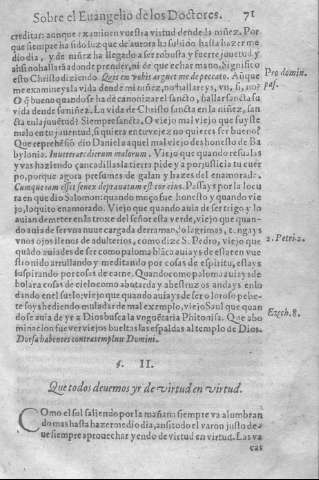 Sobre el Euangelio de los Doctores. 71
creditar: aunque examinen vuestra virtud desde la niñez. Por
que siempre ha sido luz que de aurora ha subido hasta hazer me
dio dia, y de niñez ha llegado a ser robusta y fuerte jouetud y
assi no hallarà donde prender, ni de que echar mano. Significo
esto Christo diziendo. Quis ex vobis arguet me de peccato. Aũque
me examineys la vida dende mi niñez, no hallareys, vn, si, no?
O q̃ bueno quando se ha de canonizar el sancto, hallar sancta su
vida dende su niñez. La vida de Christo sancta en la niñez, san
cta en la juuẽtud? Siempre sancta. O viejo mal viejo que fuyste
malo en tu juuentud, si quiera en tu vejez no quieres ser bueno?
Que reprehẽsiõ dio Daniel a aquel mal viejo deshonesto de Ba
bylonia. Inueterate dierum malorum. Viejo que quando resualas
y vas haziendo çancadillas la tierra pide y a por justicia tu cuer
po, porque agora presumes de galan y hazes del enamorado.
Cumque iam esset senex deprauatum est cor eius. Passays por la locu
ra en que dio Salomon: quando moço fue honesto y quando vie
jo, loquito enamorado. Viejo que quando auia de ser trigo y lo
auian de meter en la troxe del señor esta verde, viejo que quan-
do auia de ser vna nuue cargada derramando lagrimas, tengays
vnos ojos llenos de adulterios, como dize S. Pedro, viejo que
quãdo auiades de ser como paloma blãca auiays de estar en vue
stro nido arrullando y meditando por cosas de espiritu, estays
suspirando por cosas de carne. Quando como paloma auiays de
bolar a cosas de cielo como abutarda y abestruz os andays enlo
dando en el suelo; viejo que quando auiays de ser oloroso pebe-
te soys hediendo muladar de mal exemplo, viejo Saul que quan
do se auia de yr a Dios busca la
Phitonisa. Que abo
minacion fue ver viejos bueltas las espaldas al templo de Dios.
Dorsa habentes contra templum Domini.
Pro domin.
pas.
2. Petri. 2.
Ezech. 8.
§. II.
Que todos deuemos yr de virtud en virtud.
COmo el sol saliendo por la mañana siempre va alumbran
do mas hasta hazer medio dia, assi todo el varon justo de-
ue siempre aprouechar y endo de virtud en virtud. Las va
cas